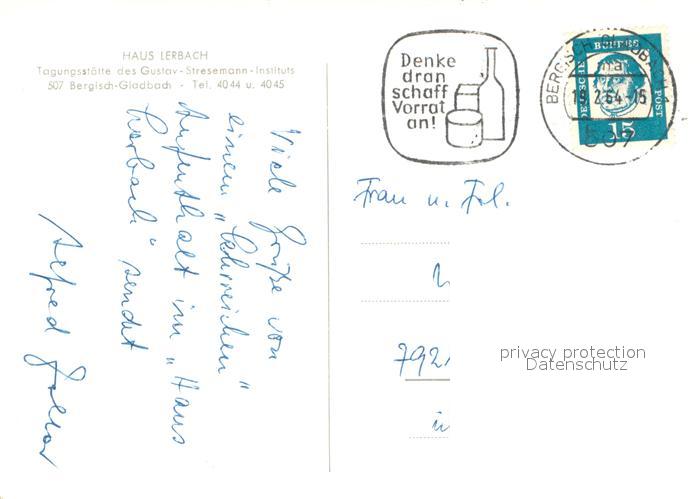 HAUS LERBACH
Tagungsstätte des Gustav-Stresemann-Instituts
507 Bergisch-Gladbach - Tel. 4044 u. 4045
Viele Grüße von
einem „lehrreichen"
Aufenthalt im „Haus
Lerbach" sendet
Alfred
Denke
dran
schaff
Vorrat
an!
BERGISCH GLADBACH
19.2.64-15
507
DEUTSCHE
BUNDES
POST
15
Frau u. Frl.
792
privacy protection
Datenschutz